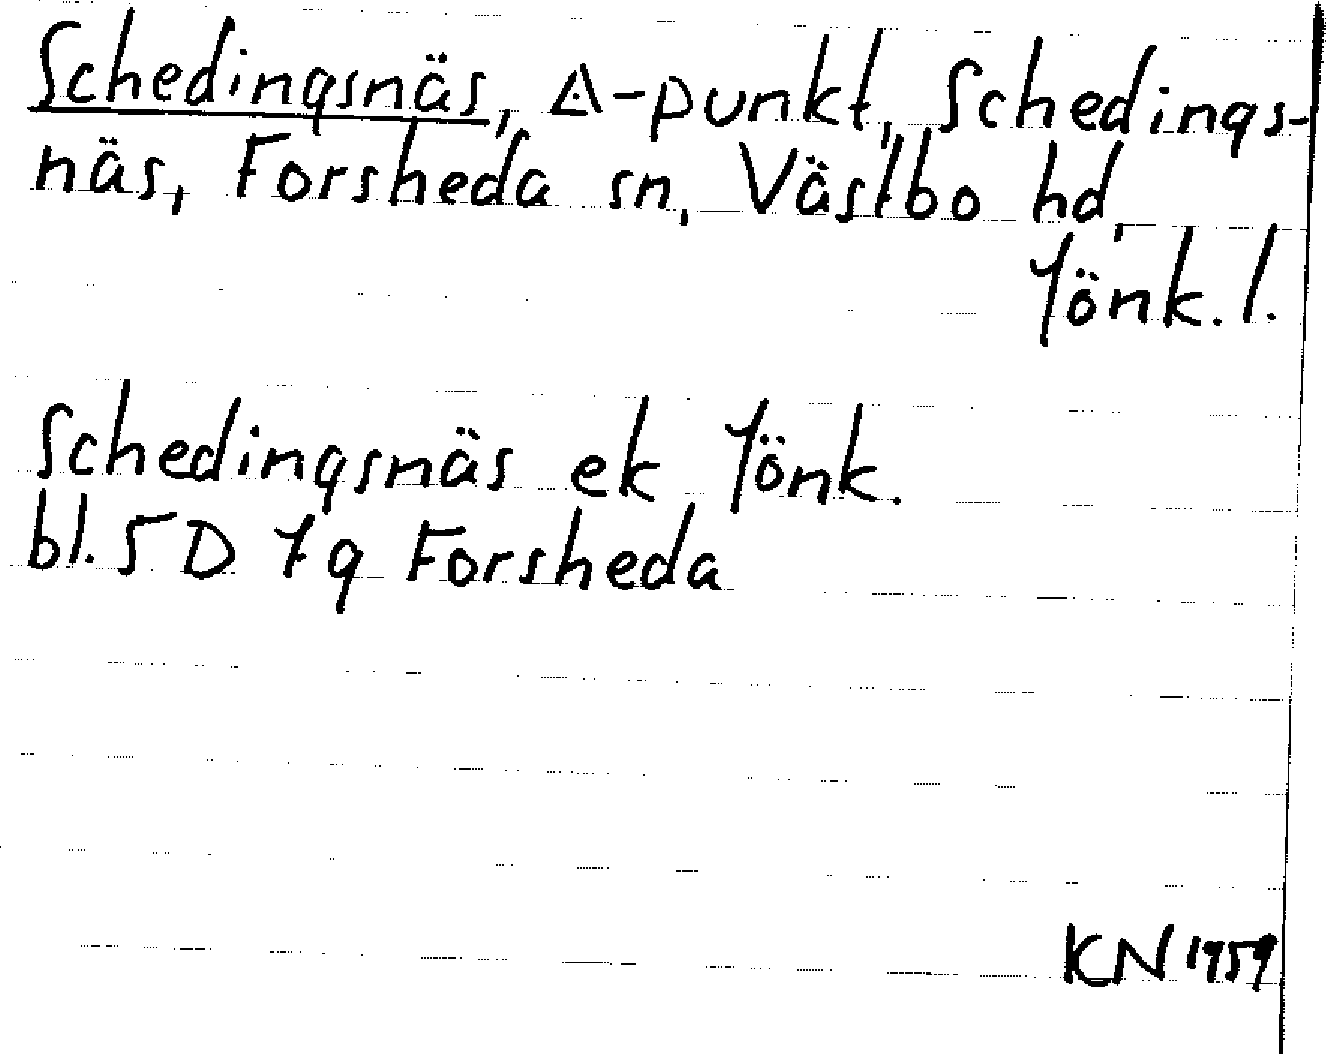 Schedingsnäs, △-punkt, Schedings-
näs, Forsheda sn, Västbo hd,
Jönk. l.
Schedingsnäs ek Jönk.
bl. 5 D 7 g Forsheda
KN 1959